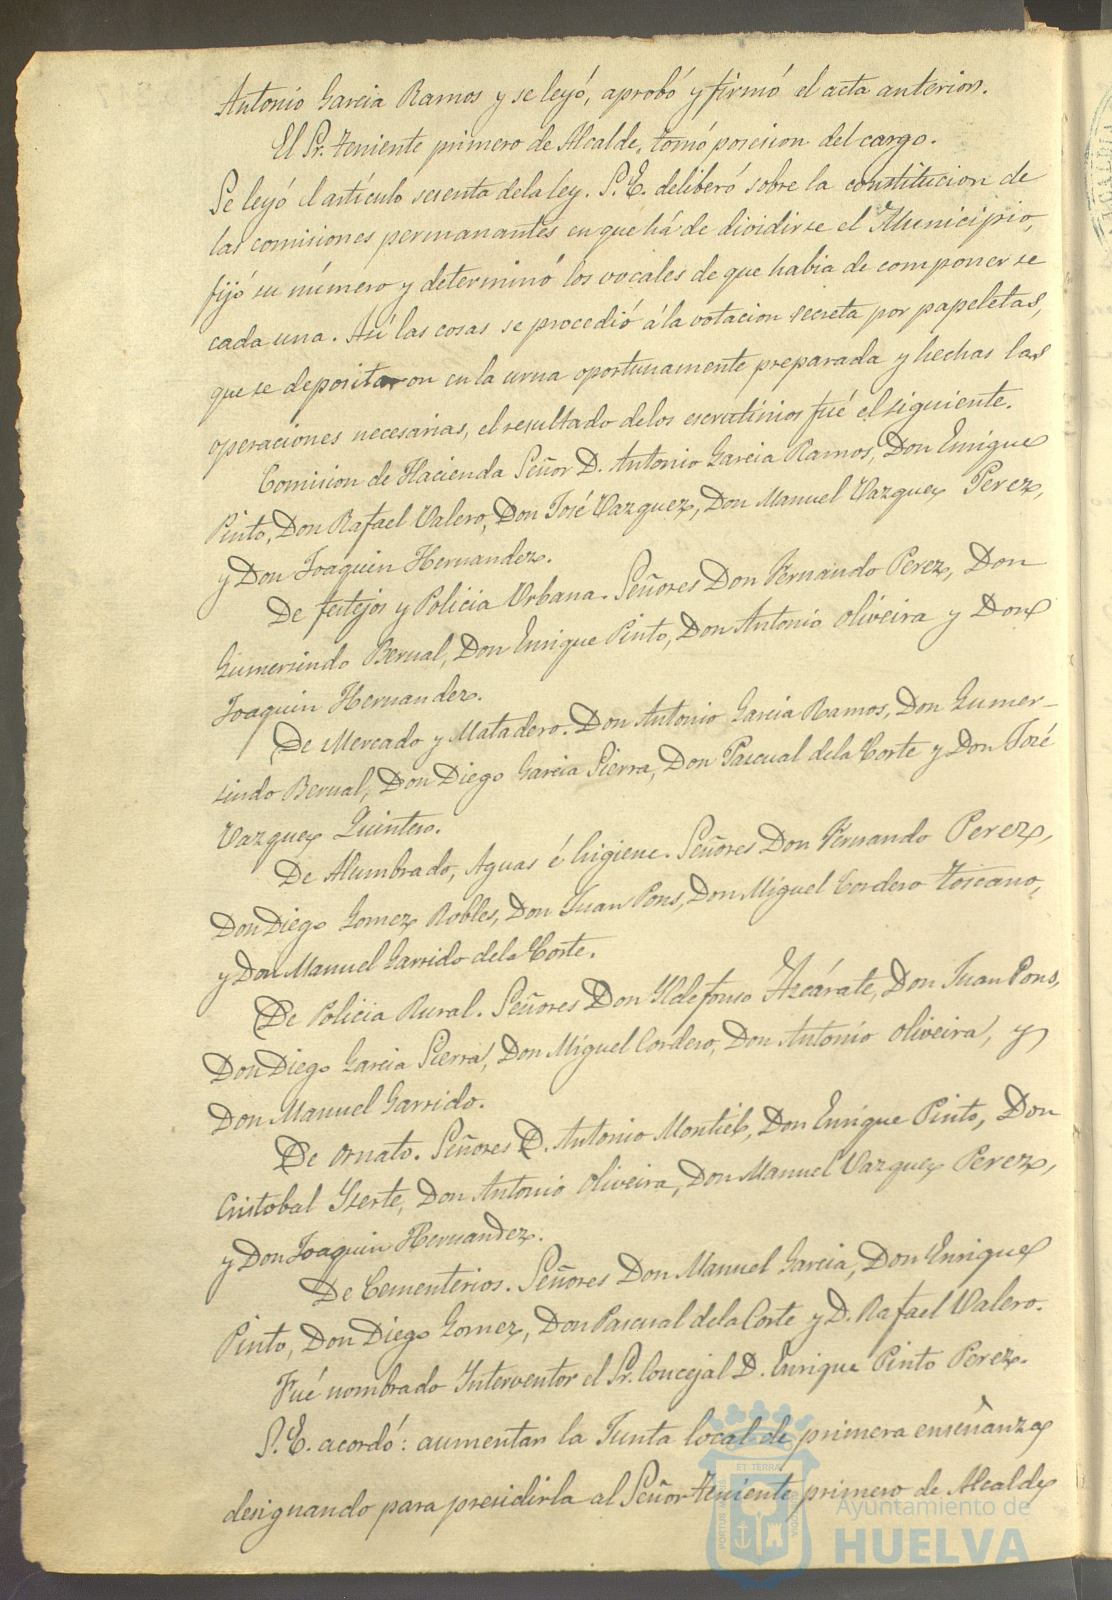 Antonio Garcia Ramos y se leyó, aprobó y firmó el acta anterior.
El Sr. Teniente primero de Alcalde, tomó posesion del cargo.
Se leyó el artículo sesenta dela ley. S. E. deliberó sobre la constitucion de
las comisiones permanantes en que há de dividirse el Municipio,
fijó su número y determinó los vocales de que habia de componerse
cada una. Así las cosas se procedió á la votacion secreta por papeletas,
que se depositaron en la urna oportunamente preparada y hechas las
operaciones necesarias, el resultado delos escrutinios fué el siguiente.
Comision de Hacienda Señor D. Antonio Garcia Ramos, Don Enrique
Pinto, Don Rafael Valero, Don José Vazquez, Don Manuel Vazquez Perez,
y Don Joaquin Hernandez.
De festejos y Policia Urbana. Señores Don Fernando Perez, Don
Gumersindo Bernal, Don Enrique Pinto, Don Antonio Oliveira y Don
Joaquin Hernandez.
De Mercado y Matadero. Don Antonio Garcia Ramos, Don Gumer-
sindo Bernal, Don Diego Garcia Sierra, Don Pascual dela Corte y Don José
Vazquez Quintero.
De Alumbrado, Aguas é higiene. Señores Don Fernando Perez,
Don Diego Gomez Robles, Don Juan Pons, Don Miguel Cordero Toscano,
y Don Manuel Garrido dela Corte.
De Policia Rural. Señores Don Yldefonso Azcárate, Don Juan Pons,
Don Diego Garcia Sierra, Don Miguel Cordero, Don Antonio Oliveira, y
Don Manuel Garrido.
De Ornato. Señores D. Antonio Montiel, Don Enrique Pinto, Don
Cristobal Yserte, Don Antonio Oliveira, Don Manuel Vazquez Perez,
y Don Joaquin Hernandez.
De Cementerios. Señores Don Manuel Garcia, Don Enrique
Pinto, Don Diego Gomez, Don Pascual dela Corte y D. Rafael Valero.
Fué nombrado Interventor el Sr. Concejal D. Enrique Pinto Perez.
S. E. acordó: aumentar la Junta local de primera enseñanza
designando para presidirla al Señor Teniente primero de Alcalde
ET TERRA
PORTUS
Ayuntamiento de
HUELVA